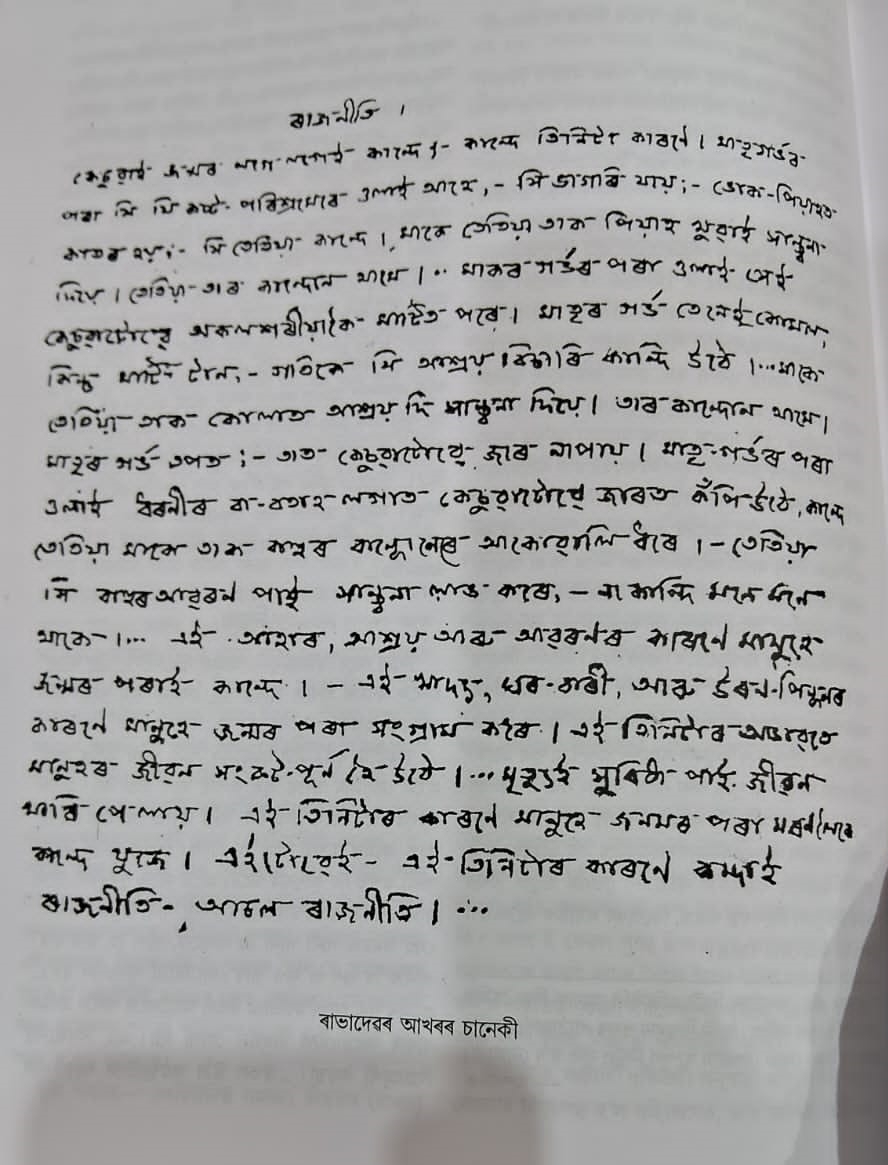 ৰাজনীতি ।
কেচুৱাই জন্মৰ লগে লগেই কান্দে ;- কান্দে তিনিটা কাৰণে । মাতৃগৰ্ভৰ
পৰা সি যি কষ্ট- পৰিশ্ৰমেৰে ওলাই আহে, - সি ভাগৰি যায় ;- ভোক-পিয়াহত
কাতৰ হয় ;- সি তেতিয়া কান্দে । মাকে তেতিয়া তাক পিয়াহ খুৱাই সান্ত্বনা
দিয়ে । তেতিয়া তাৰ কান্দোন থামে ।.. মাকৰ গৰ্ভৰ পৰা ওলাই সেই
কেচুৱাটোৱে অকলশৰীয়াকৈ মাটিত পৰে । মাতৃৰ গৰ্ভ তেনেই কোমল,
কিন্তু মাটি টান, - গতিকে সি আশ্ৰয় বিচাৰি কান্দি উঠে ।... মাকে
তেতিয়া তাক কোলাত আশ্ৰয় দি সান্ত্বনা দিয়ে । তাৰ কান্দোন থামে ।
মাতৃৰ গৰ্ভ তপত ;- তাত কেচুৱাটোৱে জাৰ নাপায় । মাতৃ-গৰ্ভৰ পৰা
ওলাই ধৰণীৰ বা-বতাহ লগাত কেচুৱাটোৱে জাৰত কঁপি উঠে, কান্দে
তেতিয়া মাকে তাক কাপোৰ আকোৱালি ধৰে । - তেতিয়া
সি আৱৰণ পাই সান্ত্বনা লাভ কৰে, - না কান্দি মনে মনে
থাকে ।... এই আহাৰ, আশ্ৰয় আৰু আৱৰণৰ কাৰণে মানুহে
জন্মৰ পৰাই কান্দে । - এই খাদ্য, ঘৰ-বাৰী, আৰু উৰণ-পিন্ধনৰ
কাৰণে মানুহে জন্মৰ পৰা সংগ্ৰাম কৰে । এই তিনিটাৰ অভাৱতে
মানুহৰ জীৱন সংকট-পূৰ্ণ হৈ উঠে ।... মৃত্যুই সুবিধা পাই জীৱন
মাৰি পেলায় । এই তিনিটাৰ কাৰণে মানুহে জনমৰ পৰা মৰণলৈকে
কান্দে যুজে । এইটোৱেই- এই-তিনিটাৰ কাৰণে
ৰাজনীতি-, আচল ৰাজনীতি । ...
ৰাভাদেৱৰ আখৰৰ চানেকী